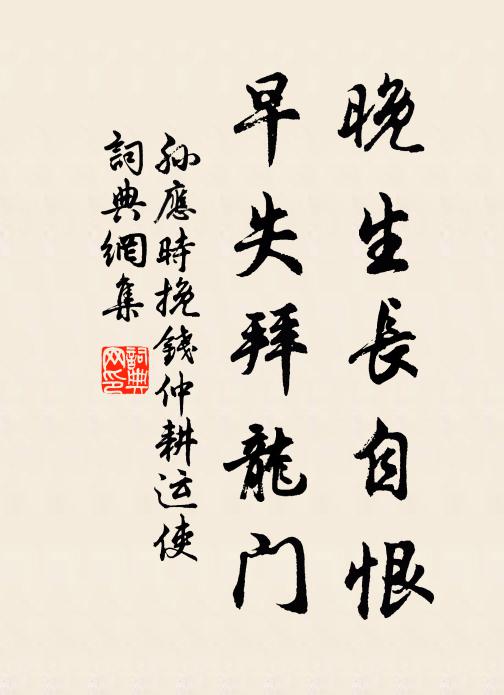 晚生長自恨
早失拜龍门
孫應時挽錢仲耕运使
詞典網集
詞典网印